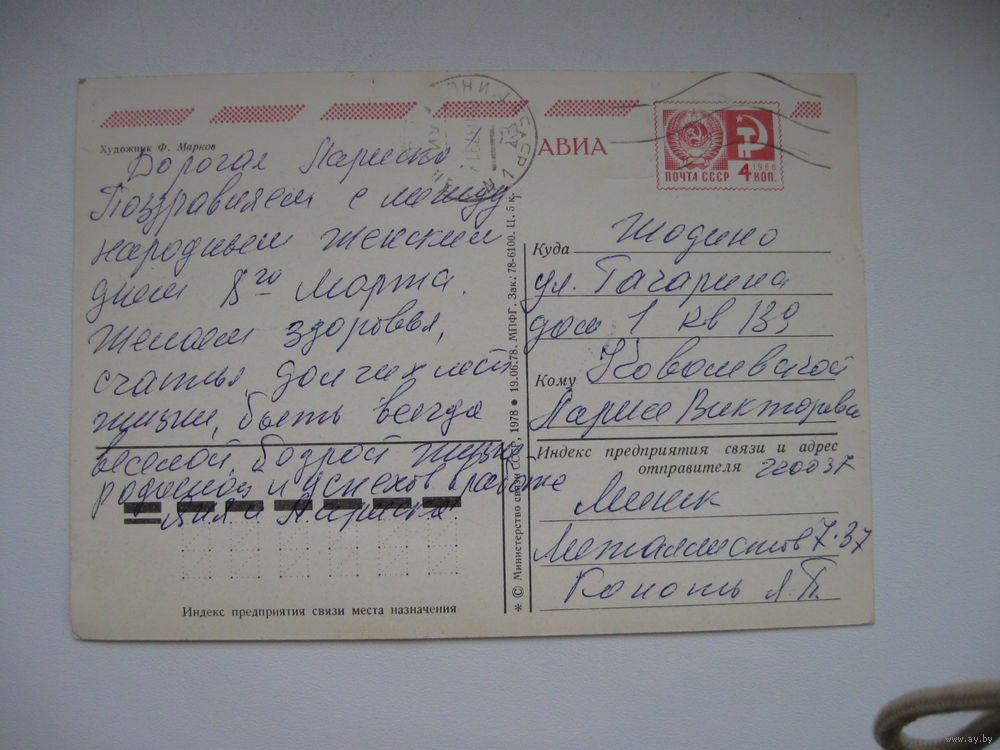 Художник Ф. Марков
АВИА
ПОЧТА СССР
1966
4 КОП.
Дорогая Лариска!
Поздравляем с между
народным женским
днем 8го Марта.
Желаем здоровья,
счастья долгих лет
жизни, быть всегда
веселой, бодрой
и успехов в работе
Лариска
Индекс предприятия связи места назначения
* © Министерство связи СССР, 1978 ● 19.06.78. МПФГ. Зак. 78-6100. Ц. 5 к.
Куда Жодино
ул. Гагарина
дом 1 кв 139
Кому Ковалевской
Ларисе Викторовне
Индекс предприятия связи и адрес
отправителя 220037
Минск
Металлистов 7-37
Конопль
www.ay.by